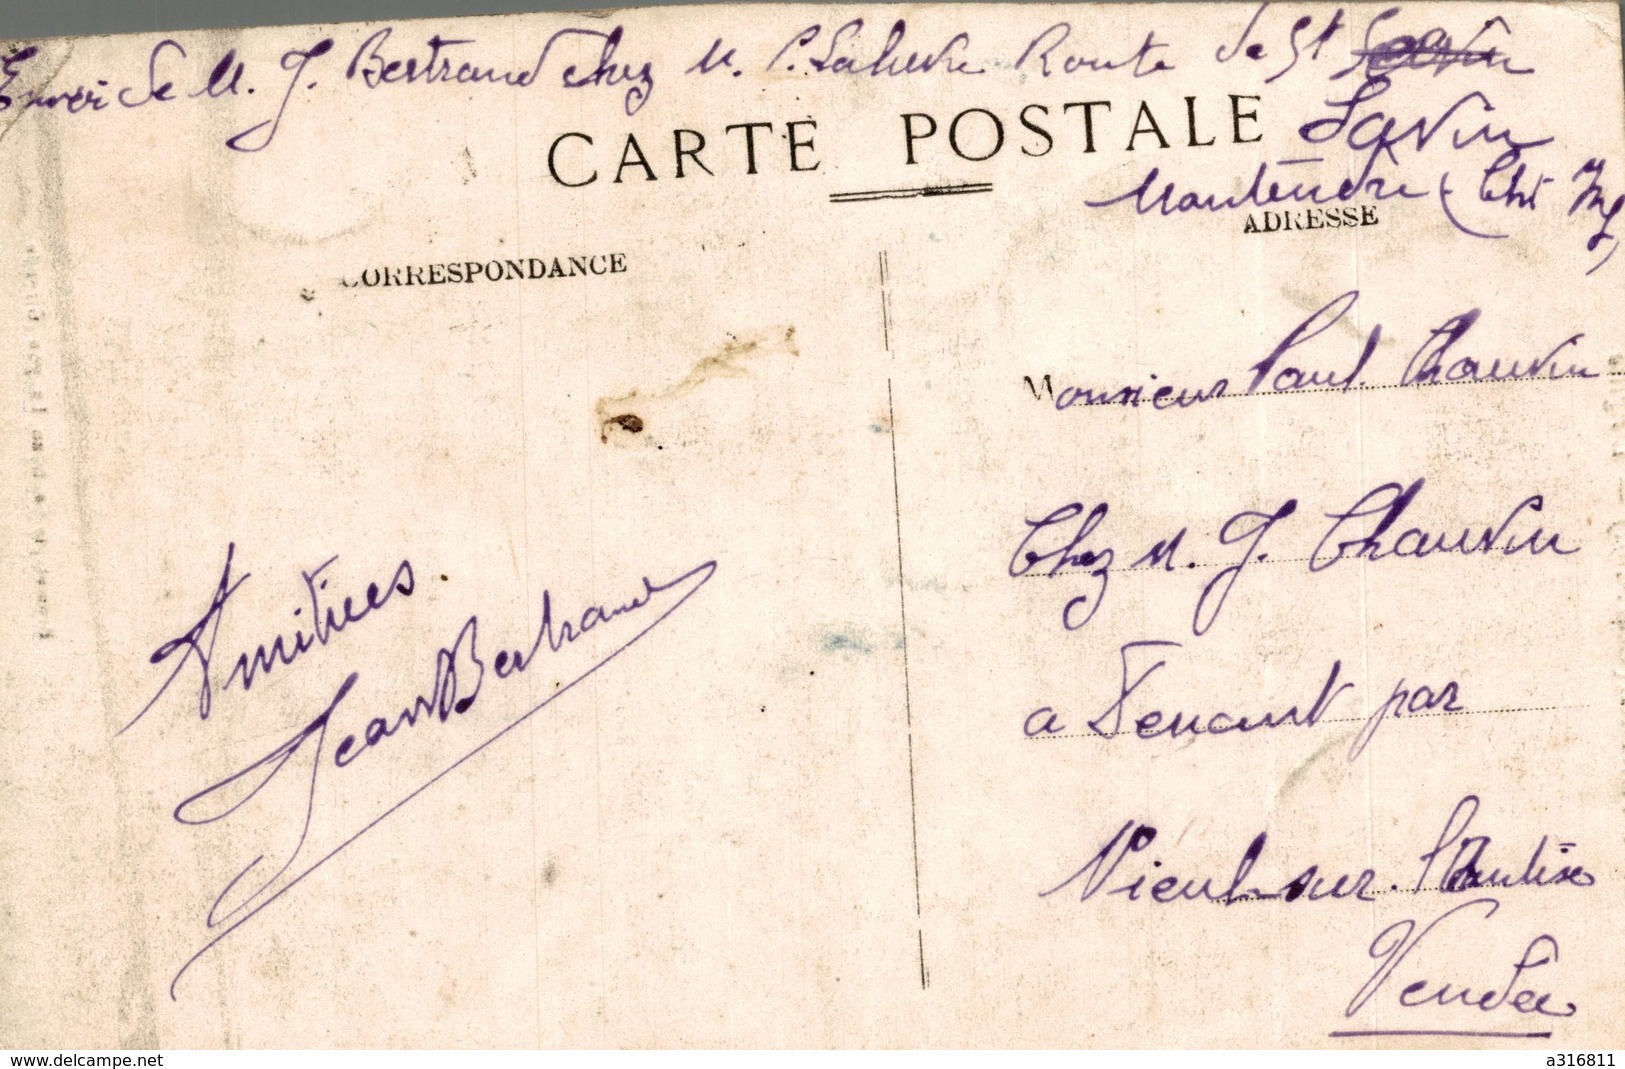 Envoi de M. J. Bertrand chez M. P. Route de St
Savin
CARTE POSTALE
Montendre (Cht Inf)
ADRESSE
CORRESPONDANCE
Monsieur Paul Chauvin
Chez M. J. Chauvin
a Tenant par
Nieul-sur-l'Autise
Vendée
Amitiées.
Jean Bertrand
www.delcampe.net
a316811